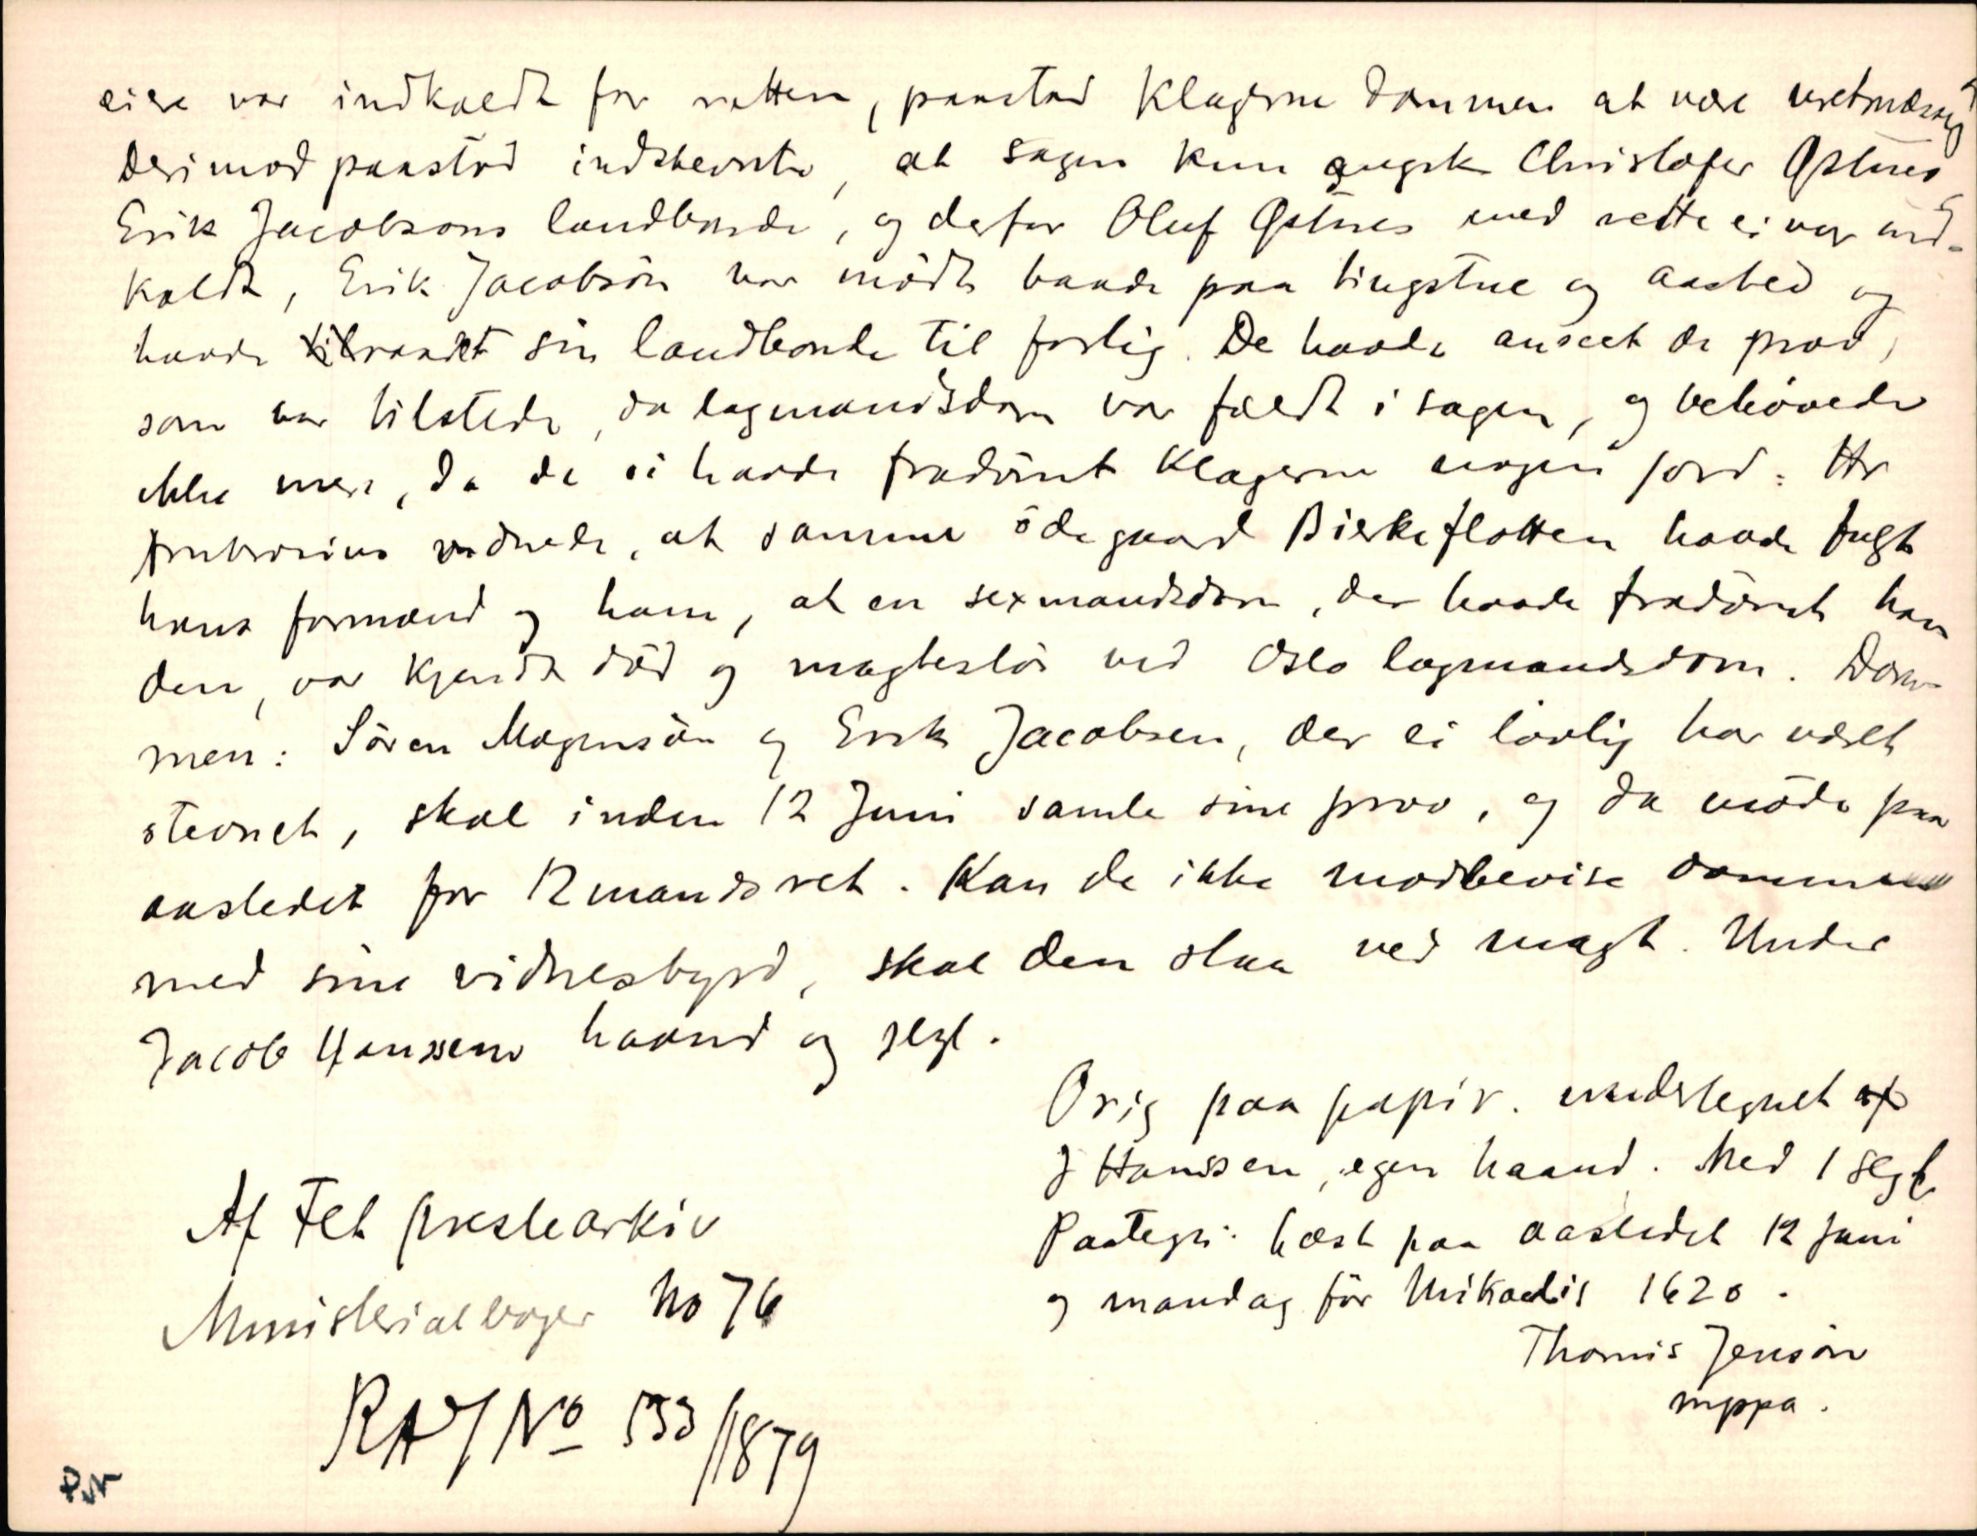 eiere var indkaldt for retten, paastod klagerne dommen at være uretmæssig
Derimod paastod indstevnte, at sagen kun angik Christofer Østnes,
Erik Jacobsons landbonde, og derfor Oluf Østnes med rette ei var ind-
kaldt, Erik Jacobsön var mödt baade paa tingstue og aasted og
havde raadet sin landbonde til forlig. De havde anseet de prov,
som var tilstede, da lagmandsdom var fældt i sagen, og behövede
ikke mere, da de ei havde fradömt klagerne nogen jord. Hr
Ambrosius vidnede, at samme ödegaard Birkeflotten havde fulgt
hans formænd og ham, at en sexmandsdom, der havde fradömt ham
den, var kjendt död og magteslös ved Oslo lagmandsdom. Dom-
men: Sören Mogensön og Erik Jacobsen, der ei lovlig har været
stevnet, skal inden 12 Juni samle sine prov, og da möde paa
aastedet for 12 mandsret. Kan de ikke modbevise dommen
med sine vidnesbyrd, skal den staa ved magt. Under
Jacob Hanssens haand og segl.
Orig paa papir. undertegnet af
J Hanssen, egen haand. Med 1 segl.
Paategn: læst paa aastedet 12 Juni
og mandag för Mikaelis 1620.
Thomis Jensön
mppa.
Af Fet prestearkiv
Ministerialbøger No 76
RAJ No 533/1879